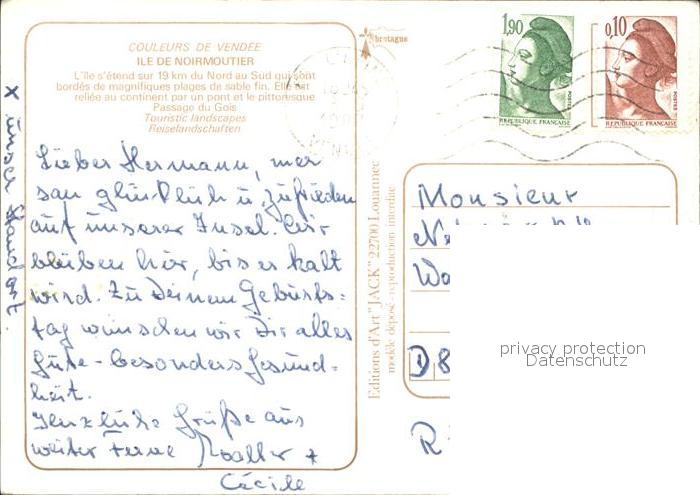 COULEURS DE VENDÉE
ILE DE NOIRMOUTIER
L'île s'étend sur 19 km du Nord au Sud qui sont
bordés de magnifiques plages de sable fin. Elle est
reliée au continent par un pont et le pittoresque
Passage du Gois
Touristic landscapes
Reiselandschaften
Lieber Hermann, mer
san glücklich u. zufrieden
auf unserer Insel. Wir
bleiben hier, bis es kalt
wird. Zu Deinem Geburts=
tag wünschen wir Dir alles
Gute - besonders Gesund=
heit.
Herzliche Grüße aus
weiter Ferne Walter +
Cécile
x unser Standort
Editions d'Art "JACK" 22700 Louannec
modèle déposé - reproduction interdite
bretagne
1,90
POSTES
REPUBLIQUE FRANÇAISE
0,10
POSTES
REPUBLIQUE FRANÇAISE
Monsieur
D 8
privacy protection
Datenschutz